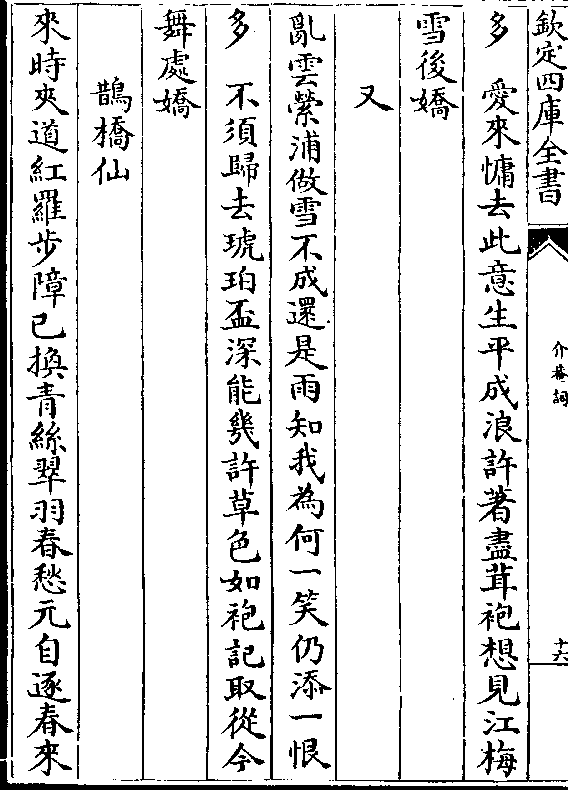 欽定四庫全書
介菴詞
十六
多　愛來慵去此意生平成浪許著盡茸袍想見江梅
雪後嬌
又
亂雲縈浦做雪不成還是雨知我為何一笑仍添一恨
多　不須歸去琥珀盃深能幾許草色如袍記取從今
舞處嬌
鵲橋仙
來時夾道紅羅步障已換青絲翠羽春愁元自逐春來